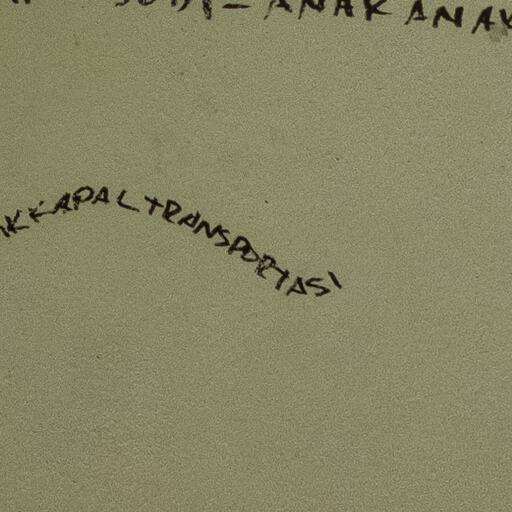 ANAK ANAK
KAPAL TRANSPORTASI